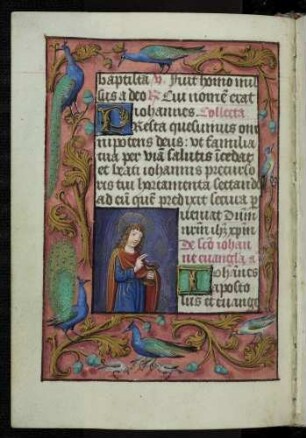 baptista v. Fuit homo mis
sus a deo R Cui nomē erat
iohannes. Collecta
Presta quesumus om
nipotens deus: ut familia
tua per viā salutis īcedat
et beati iohannis precurso
ris tui hortamenta sectando
ad eū quē predixit secura p
ueniat Dnīm
nrm̄ ihm̄ xpm̄
De scō iohan
ne euangelista a
Iohānes
aposto
lus et euange